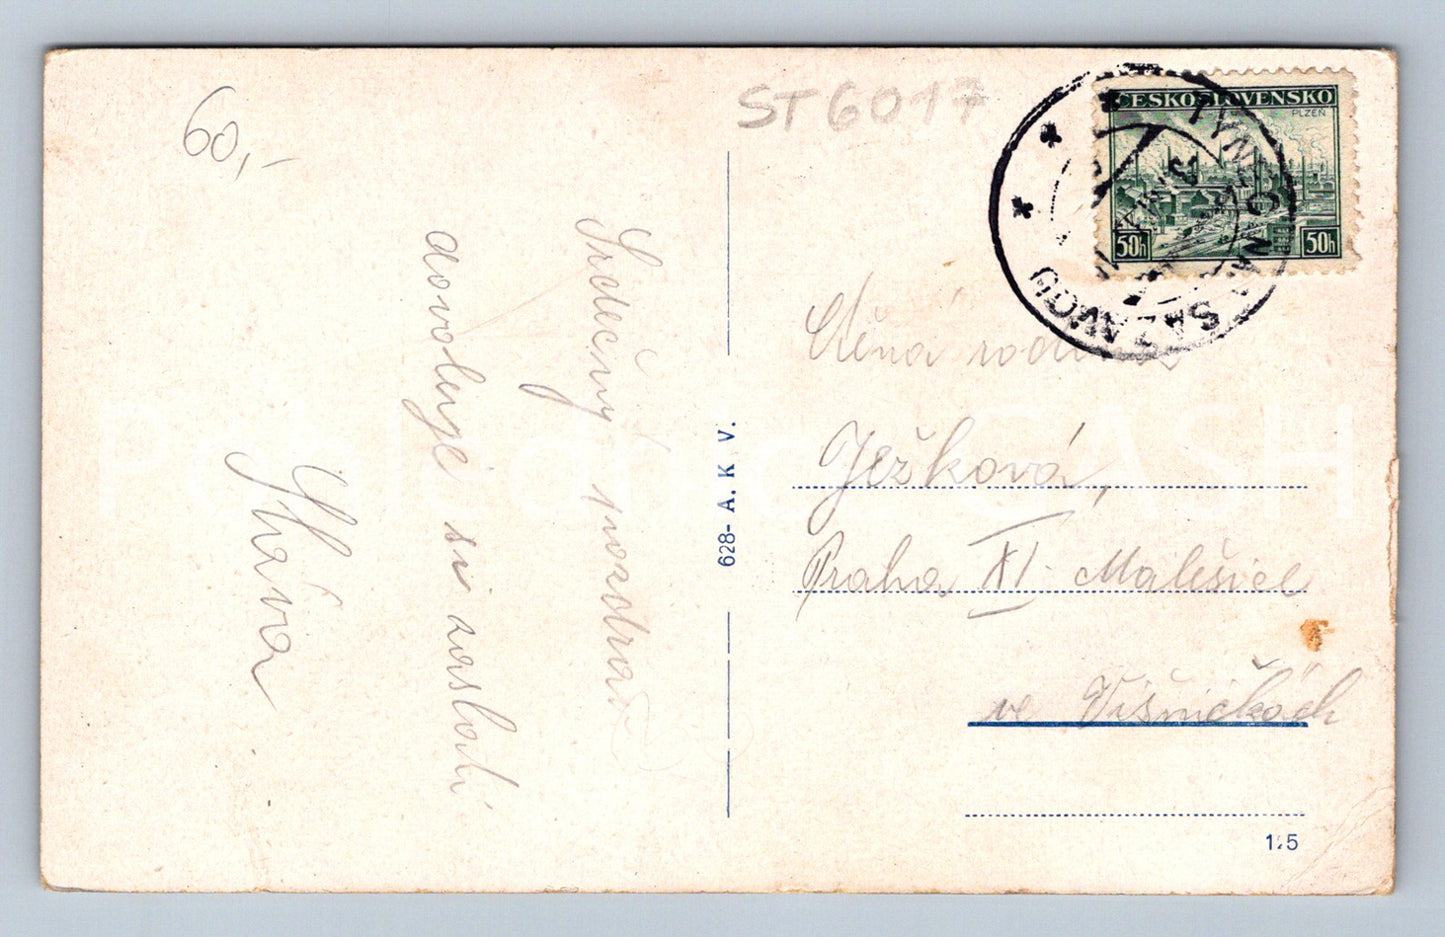 60,-
ST6017
ČESKOSLOVENSKO
PLZEŇ
50h 50h
TÝNEC NAD SÁZAVOU
Srdečný pozdrav
dovoluje si zaslati
Sláva
628- A. K. V.
Ctěná rodina
Ježková,
Praha XI. Malešice
ve Višničkách
125